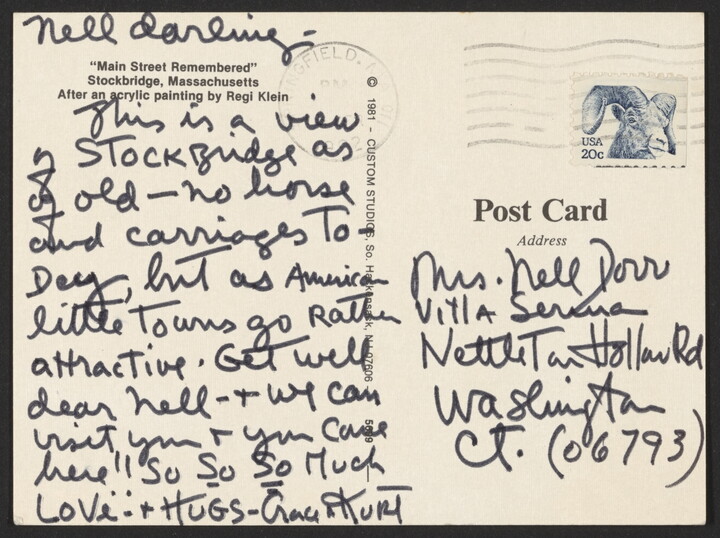 Nell darling -
"Main Street Remembered"
Stockbridge, Massachusetts
After an acrylic painting by Regi Klein
This is a view
of STOCKBridge as
of old - no horse
and carriages To-
Day, but as American
little Towns go Rather
attractive. Get well
dear Nell - + we can
visit you + you come
here!! So So So Much
LOVE: + HUGS - Grace + KURT
© 1981 - CUSTOM STUDIOS, So. Hackensack, NJ 07606
USA
20c
Post Card
Address
Mrs. Nell Dorr
Villa Serena
Nettleton Hollow Rd
Washington
CT. (06793)